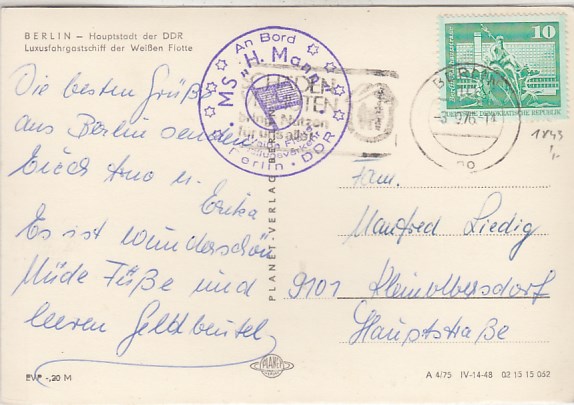 BERLIN – Hauptstadt der DDR
Luxusfahrgastschiff der Weißen Flotte
Die besten Grüße
aus Berlin senden
Euch Arno u.
Erika
Es ist wunderschön
Müde Füße und
leeren Geldbeutel
An Bord
MS "H. Mann"
Berlin · DDR
bringt Nutzen
für uns alle
BERLIN
10
DEMOKRATISCHE REPUBLIK
1843
PLANET-VERLAG BE
Fam.
Manfred Liedig
9101 Kleinolbersdorf
Hauptstraße
EVP -,20 M
PLANET
A 4/75 IV-14-48 02 15 15 052